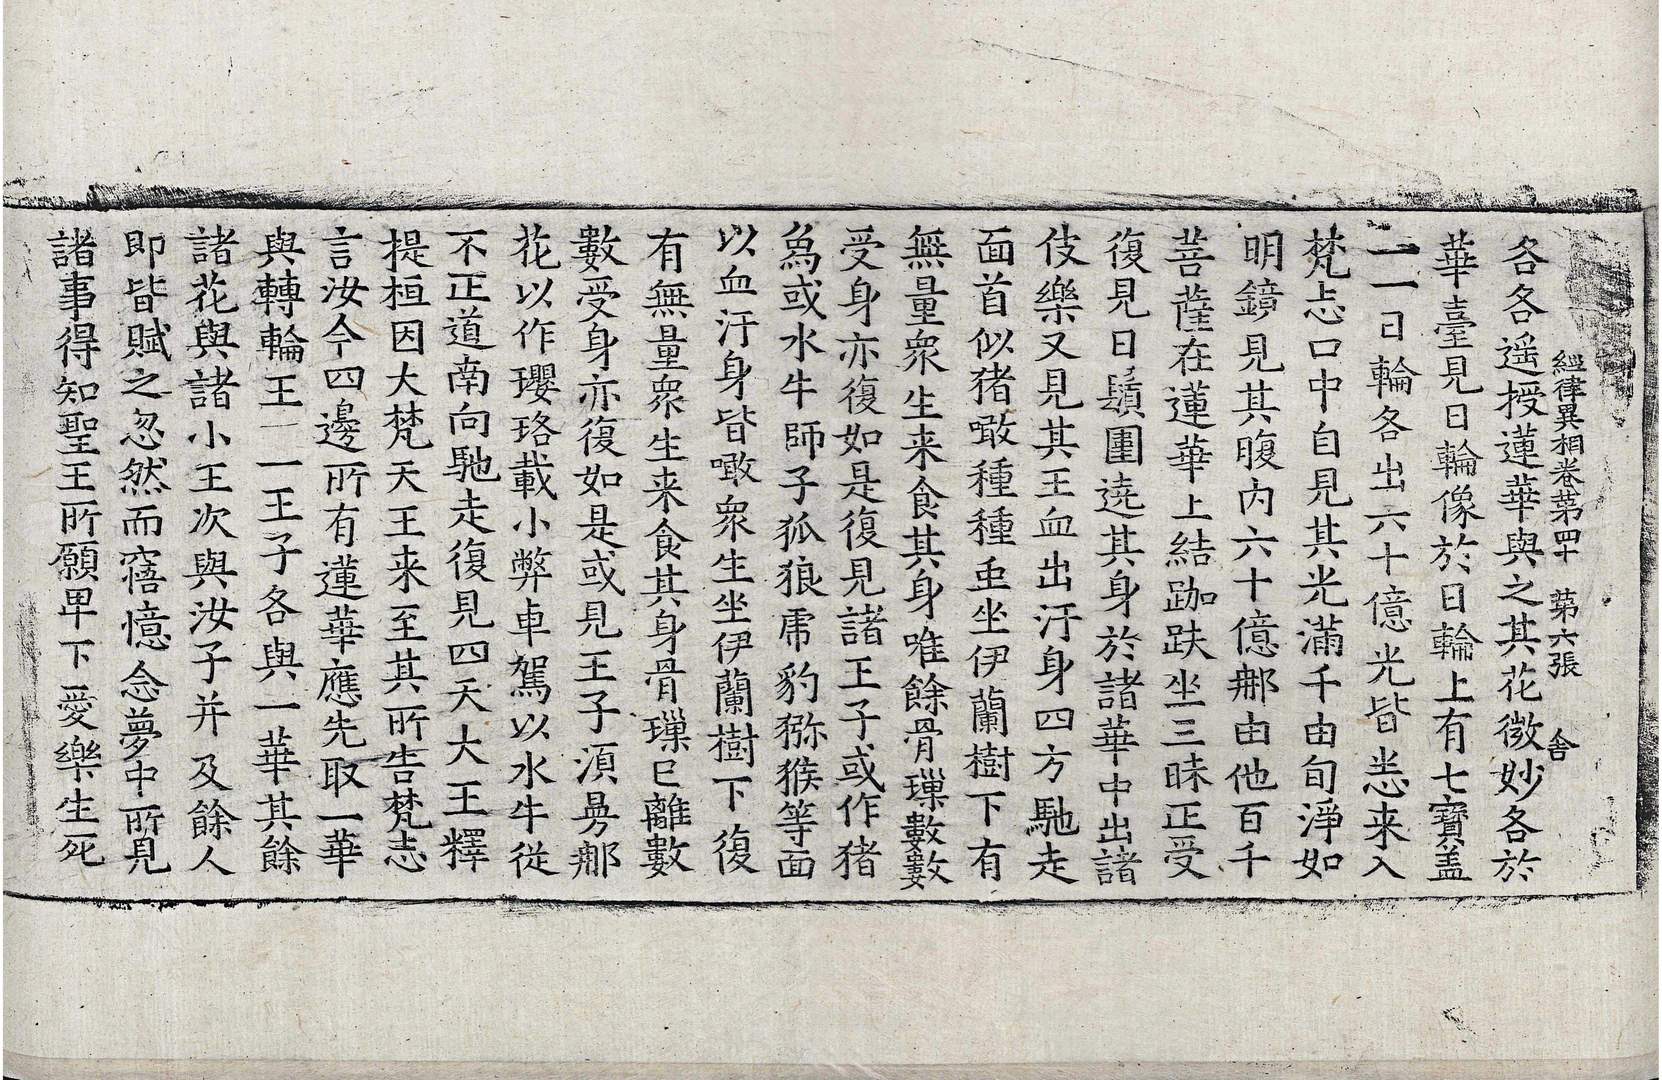 經律異相卷苐四十　苐六張　舍
各各遥授蓮華與之其花微妙各於
華臺見日輪像於日輪上有七寶盖
一一日輪各出六十億光皆悉来入
梵志口中自見其光滿千由旬淨如
明鏡見其腹内六十億那由他百千
菩薩在蓮華上結跏趺坐三昧正受
復見日鬚圍遶其身於諸華中出諸
伎樂又見其王血出汙身四方馳走
面首似猪噉種種䖝坐伊蘭樹下有
無量衆生来食其身唯餘骨璅數數
受身亦復如是復見諸王子或作猪
為或水牛師子狐狼虎豹獼猴等面
以血汙身皆噉衆生坐伊蘭樹下復
有無量衆生来食其身骨璅已離數
數受身亦復如是或見王子湏曼那
花以作瓔珞載小弊車駕以水牛從
不正道南向馳走復見四天大王釋
提桓因大梵天王来至其所告梵志
言汝今四邊所有蓮華應先取一華
與轉輪王一一王子各與一華其餘
諸花與諸小王次與汝子并及餘人
即皆賦之忽然而寤憶念夢中所見
諸事得知聖王所願卑下愛樂生死